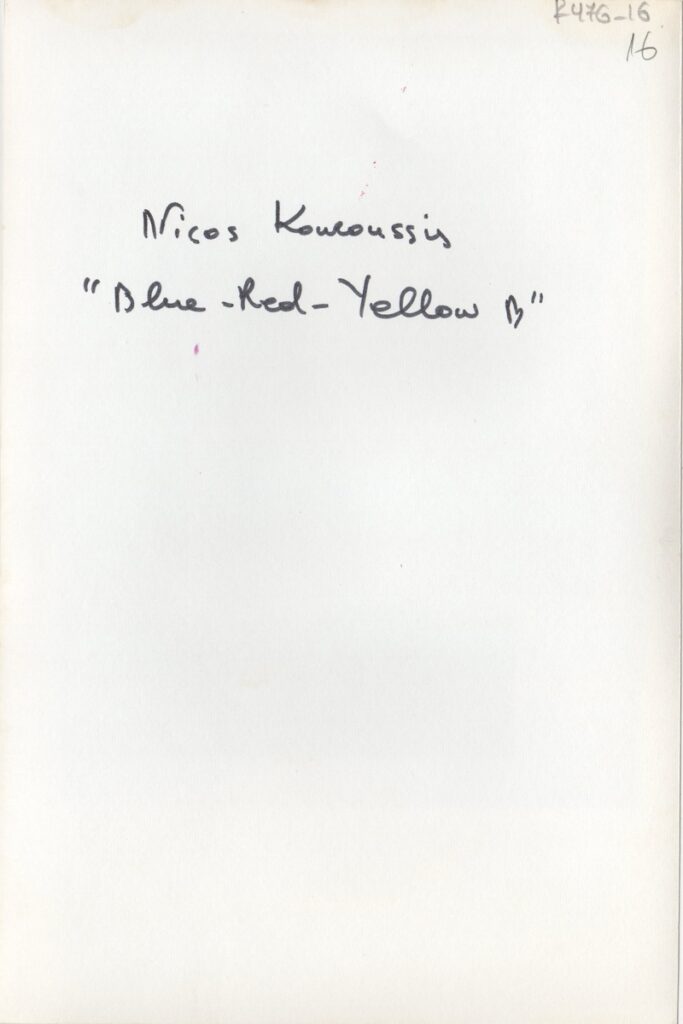 F476-16
16
Nicos Kouroussis
"Blue-Red-Yellow B"